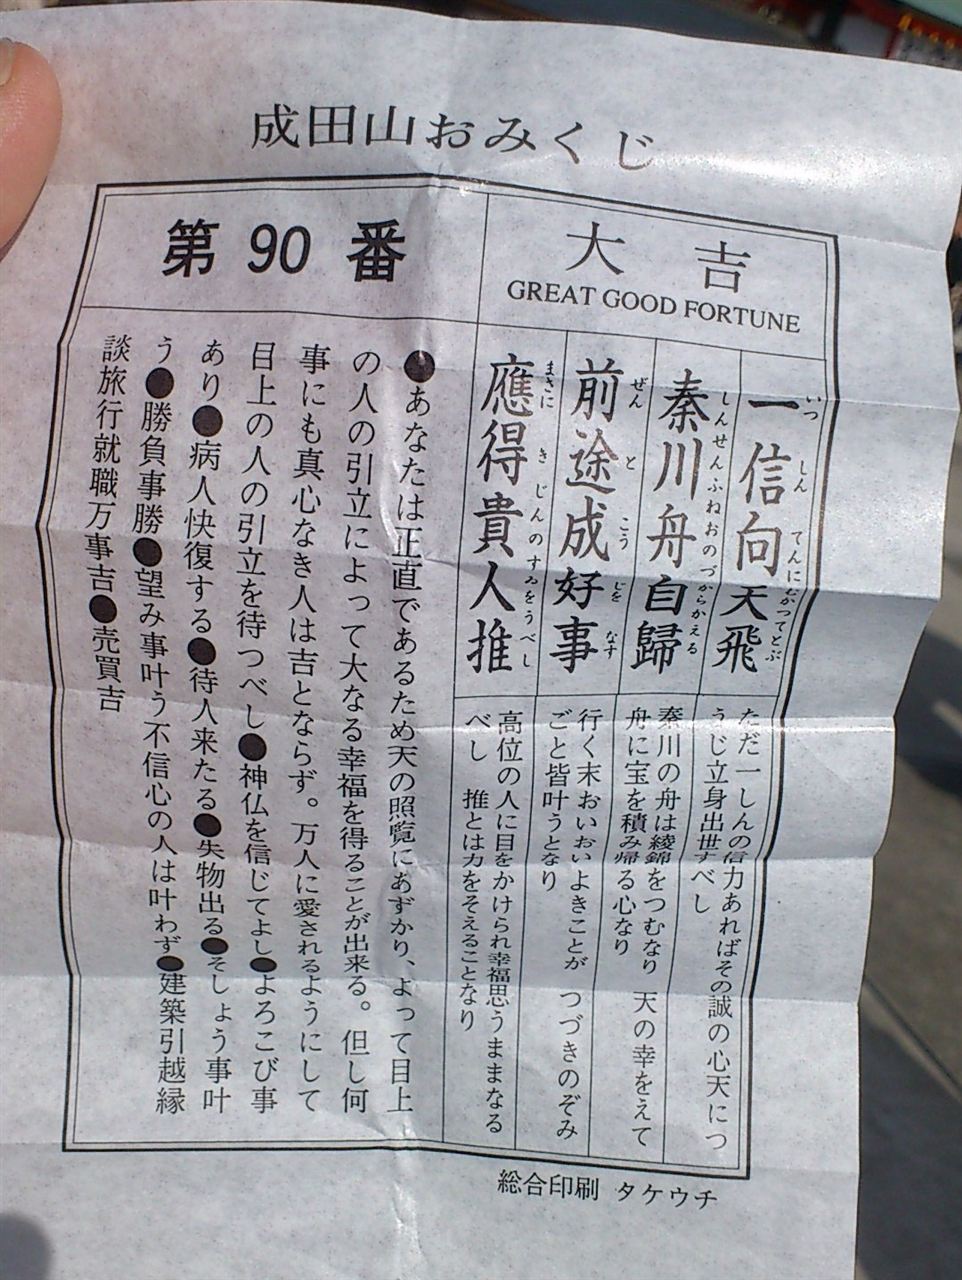 成田山おみくじ
第90番
大吉
GREAT GOOD FORTUNE
一信向天飛
いつ しん てんにむかつてとぶ
ただ一しんの信力あればその誠の心天につ
うじ立身出世すべし
秦川舟自歸
しんせんふねおのづからかえる
秦川の舟は綾錦をつむなり 天の幸をえて
舟に宝を積み帰る心なり
前途成好事
ぜんとこうじをなす
行く末おいおいよきことが つづきのぞみ
ごと皆叶うとなり
應得貴人推
まさにきじんのすゐをうべし
高位の人に目をかけられ幸福思うままなる
べし 推とは力をそえることなり
●あなたは正直であるため天の照覧にあずかり、よって目上
の人の引立によって大なる幸福を得ることが出来る。但し何
事にも真心なき人は吉とならず。万人に愛されるようにして
目上の人の引立を待つべし●神仏を信じてよし●よろこび事
あり●病人快復する●待人来たる●失物出る●そしょう事叶
う●勝負事勝●望み事叶う不信心の人は叶わず●建築引越縁
談旅行就職万事吉●売買吉
総合印刷 タケウチ